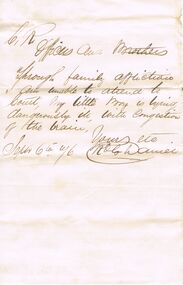 Officers and Brothers
Through family affliction
I am unable to attend to
Court, My little Boy is lying
dangerously ill, with Congestion
of the brain,
Yours etc
Daniel